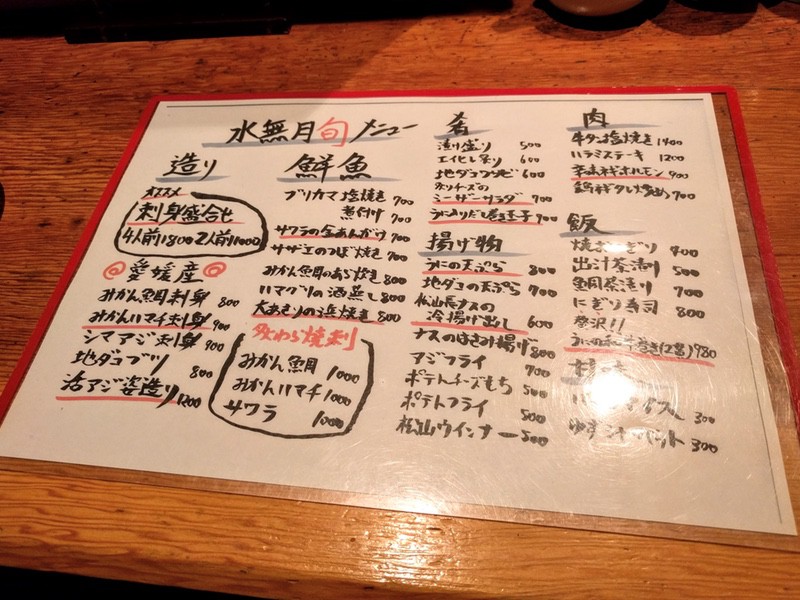 水無月旬メニュー
造り
オススメ
刺身盛合せ
4人前1800 2人前1000
愛媛産
みかん鯛刺身 800
みかんハマチ刺身 900
シマアジ刺身 900
地ダコブツ 800
活アジ姿造り 1200
鮮魚
ブリカマ塩焼き 700
煮付け 900
サワラの金あんかけ 900
サザエのつぼ焼き 700
みかん鯛のあら焼き 800
ハマグリの酒蒸し 800
大あさりの浜焼き 800
わら焼刺
みかん鯛 1000
みかんハマチ 1000
サワラ 1000
肴
漬け盛り 500
エイヒレ炙り 600
地ダコワサビ 600
シーザーサラダ 700
うに入りだし巻き玉子 900
揚げ物
うにの天ぷら 800
地ダコの天ぷら 700
松山長ナスの
冷揚げ出し 600
ナスのはさみ揚げ 800
アジフライ 700
ポテトチーズもち 500
ポテトフライ 500
松山ウインナー 500
肉
牛タン塩焼き 1400
ハラミステーキ 1200
辛味ネギホルモン 900
鶏ネギタレ炒め 700
飯
焼おにぎり 400
出汁茶漬け 500
鯛茶漬け 700
にぎり寿司 800
贅沢!!
うにの和牛巻き(2貫) 980
甘味
アイス 300
ゆずシャーベット 300